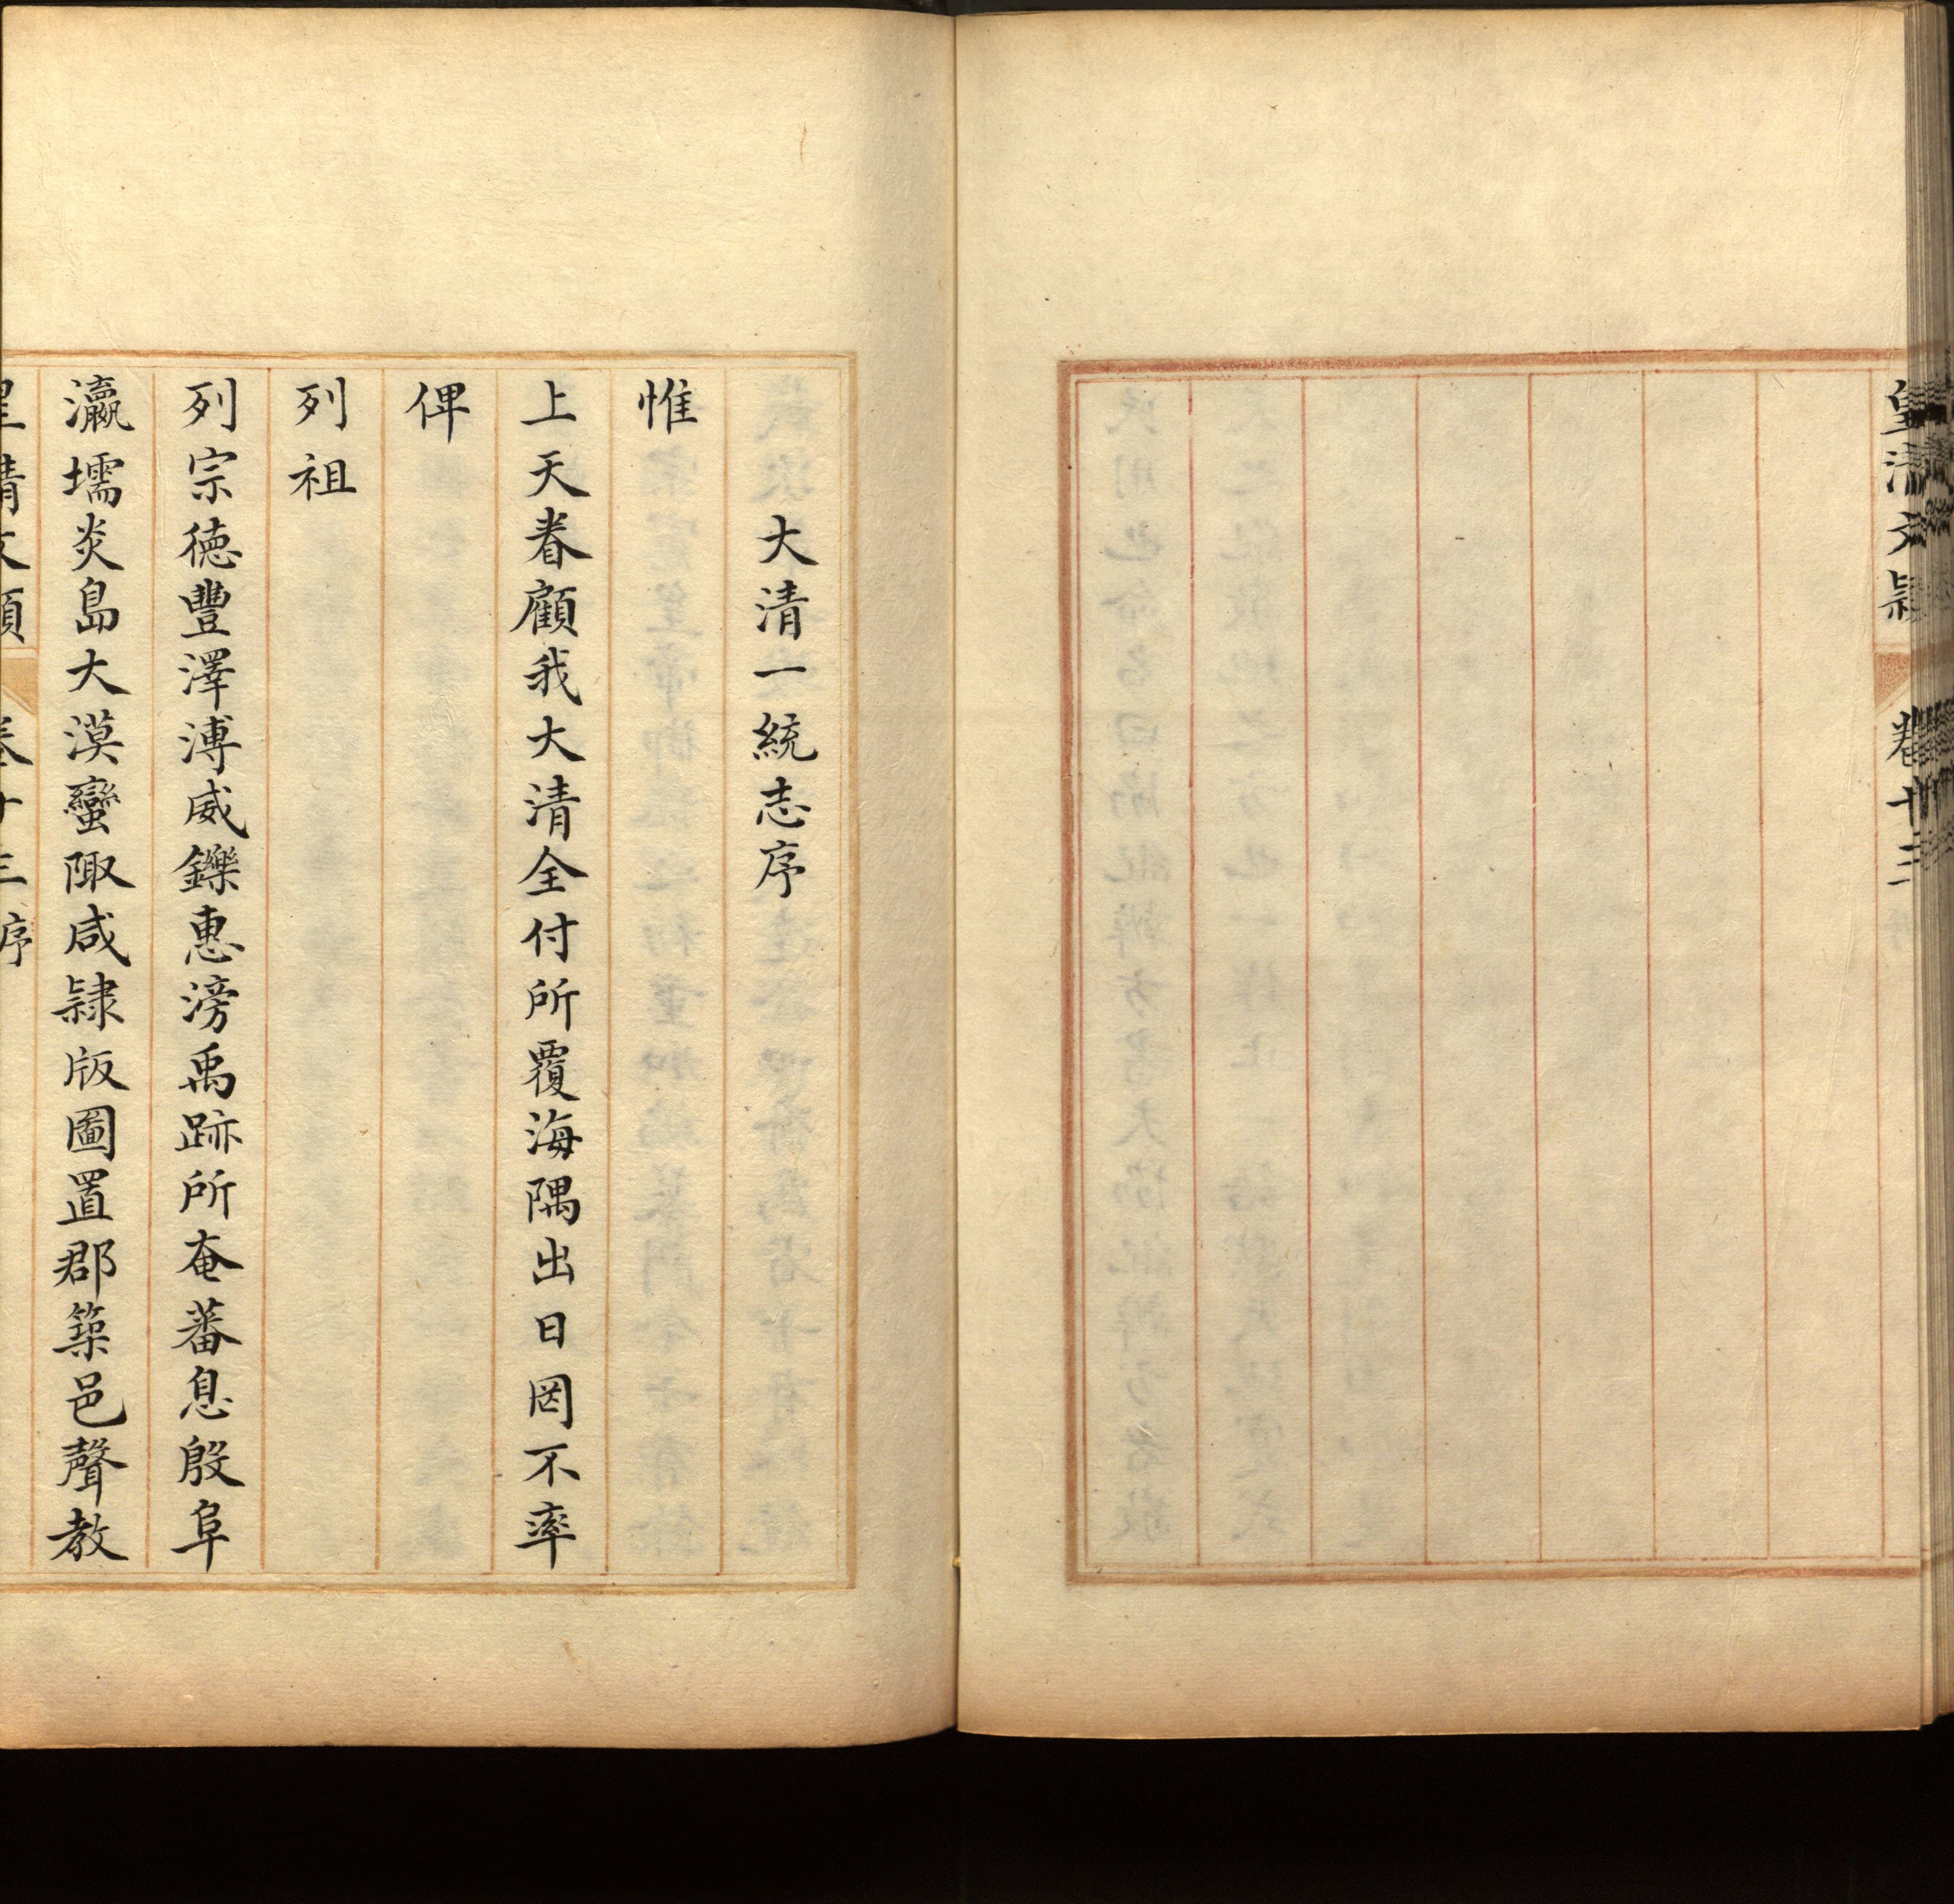 皇清文穎 卷十三
大清一統志序
惟
上天眷顧我大清全付所覆海隅出日罔不率
俾
列祖
列宗德豐澤溥威鑠惠滂禹跡所奄蕃息殷阜
瀛壖炎島大漠蠻陬咸隸版圖置郡築邑聲教
皇清文穎 卷十三 序